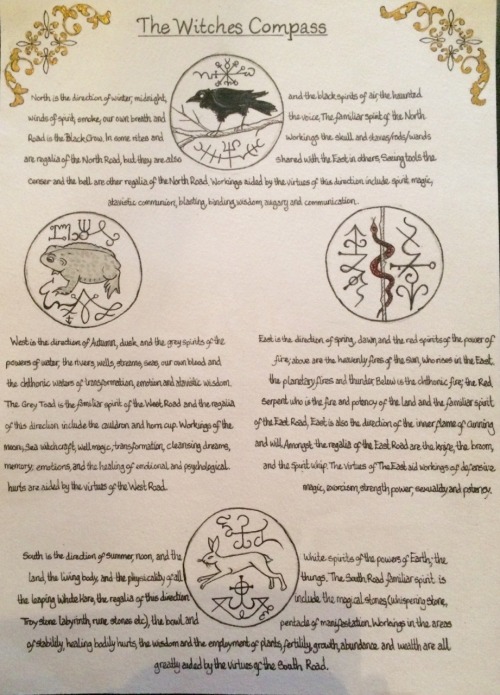 The Witches Compass
North is the direction of winter, midnight, and the black spirits of air, the haunted
winds of spirit, smoke, our own breath and the voice. The familiar spirit of the North
Road is the Black Crow. In some rites and workings the skull and staves/rods/wands
are regalia of the North Road, but they are also shared with the East in others. Seeing tools the
censer and the bell are other regalia of the North Road. Workings aided by the virtues of this direction include spirit magic,
atavistic communion, blasting, binding, wisdom, augury and communication.
West is the direction of Autumn, dusk, and the grey spirits of the
powers of water; the rivers, wells, streams, seas, our own blood and
the chthonic waters of transformation, emotion and atavistic wisdom.
The Grey Toad is the familiar spirit of the West Road and the regalia
of this direction include the cauldron and horn cup. Workings of the
moon, Sea witchcraft, well magic, transformation, cleansing dreams,
memory, emotions, and the healing of emotional and psychological
hurts are aided by the virtues of the West Road.
East is the direction of spring, dawn, and the red spirits of the power of
fire; above are the heavenly fires of the sun, who rises in the East,
the planetary fires and thunder. Below is the chthonic fire; the Red
serpent who is the fire and potency of the land and the familiar spirit
of the East Road. East is also the direction of the inner flame of cunning
and will. Amongst the regalia of the East Road are the knife, the broom,
and the Spirit whip. The virtues of The East aid workings of defensive
magic, exorcism, strength power sexuality and potency.
South is the direction of summer, noon, and the White spirits of the powers of Earth; the
land, the living body, and the physicality of all things. The South Road familiar spirit is
the leaping White Hare, the regalia of this direction include the magical stones (whispering stone,
Troy stone labyrinth, rune stones etc), the bowl, and pentacle of manifestation. Workings in the areas
of stability, healing bodily hurts, the wisdom and the employment of plants, fertility, growth, abundance and wealth are all
greatly aided by the virtues of the South Road.